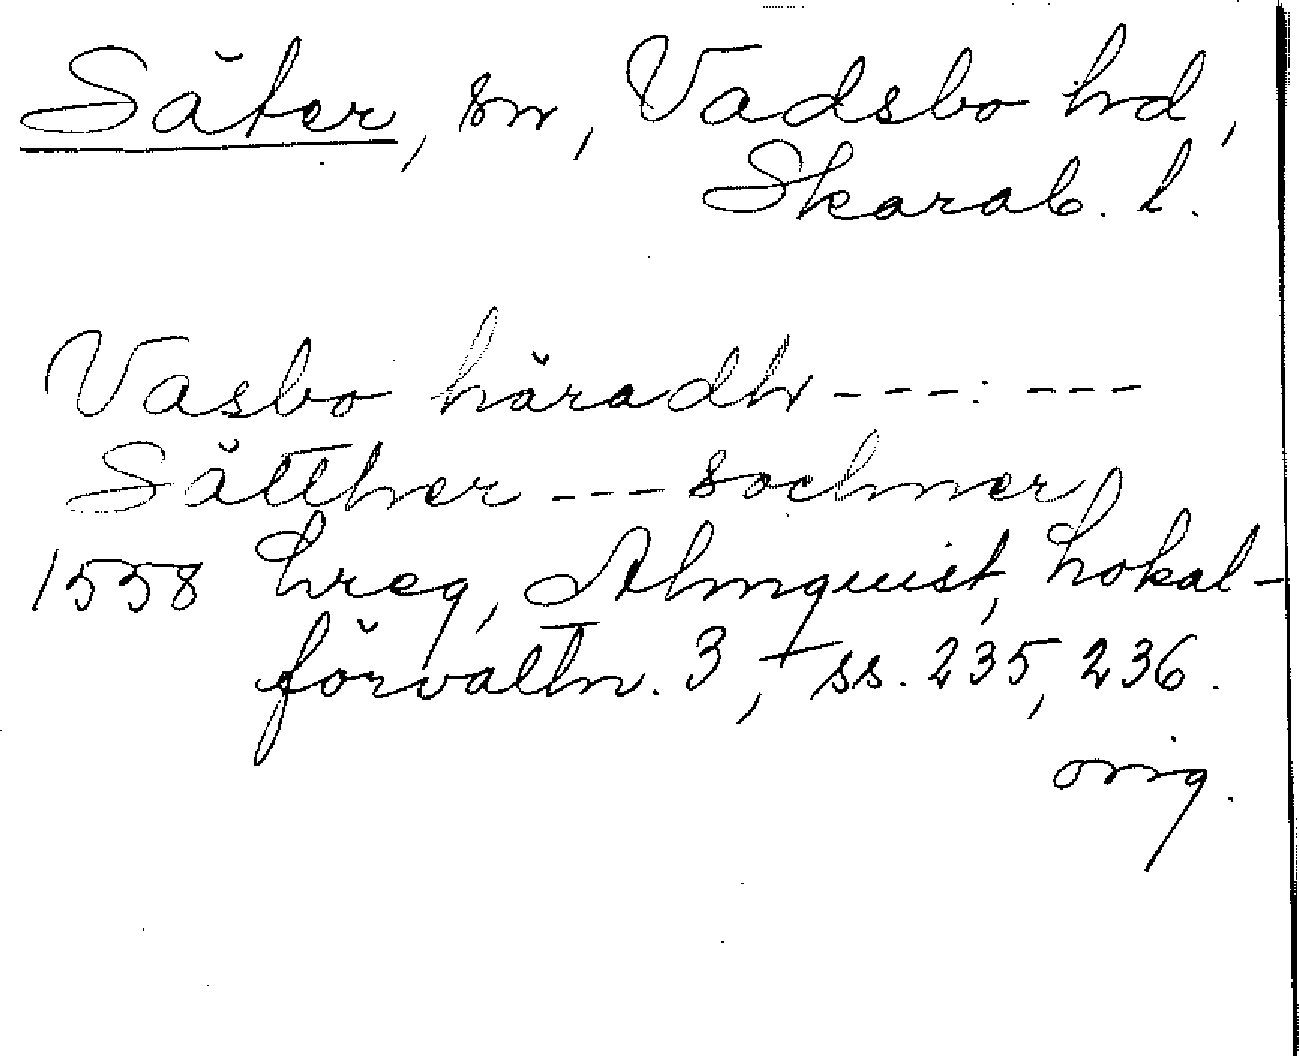 Säter, sn, Vadsbo hd,
Skarab. l.
Vasbo häradh ---:---
Sätther --- sochner
1558 hreg, Almquist, Lokal-
förvaltn. 3, ss. 235, 236.
orig.